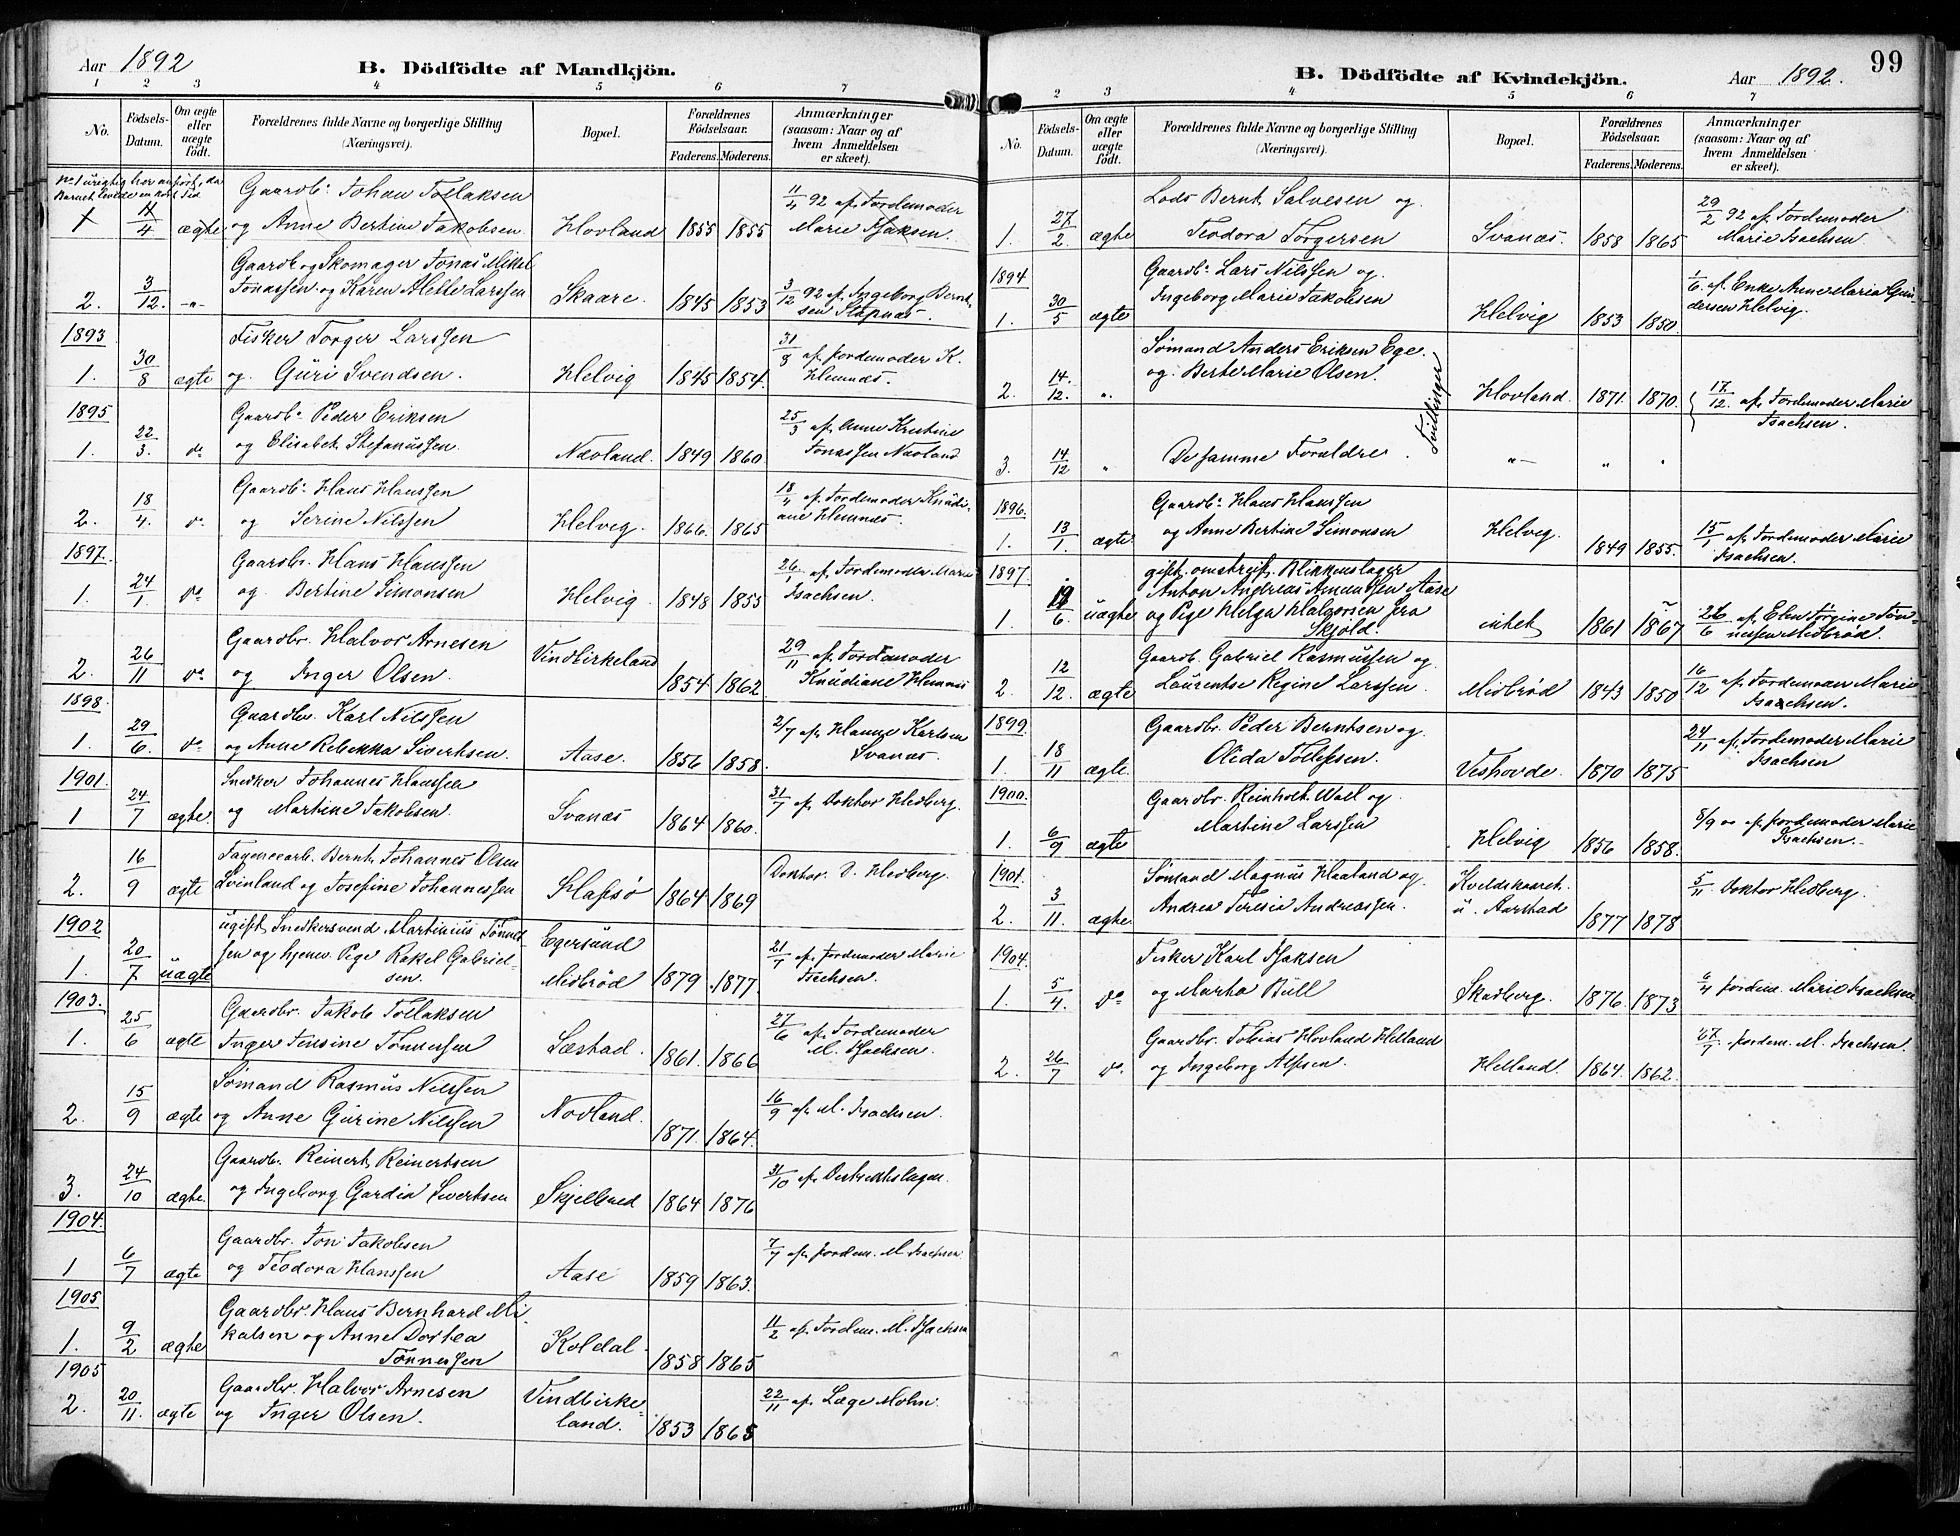 Aar 1892
B. Dödfödte af Mandkjön.
1 2 3 4 5 6 7
No.
Födsels-
Datum.
Om ægte
eller
uægte
födt.
Forældrenes fulde Navne og borgerlige Stilling
(Næringsvei).
Bopæl.
Forældrenes
Födselsaar.
Faderens. Moderens.
Anmærkninger
(saasom: Naar og af
hvem Anmeldelsen
er skeet).
No 1 urigtig her anført, da
Barnet levede en kort Tid
Gaardbr. Johan Tollaksen
1 11/4 ægte og Anne Bertine Jakobsen. Hovland 1855 1855 11/4 92 af Jordemoder
Marie Isaksen.
Gaardb. og Skomager Jonas Mikal
2. 3/12. -"- Jonassen og Karen Alette Larssen Skaare. 1845 1853 3/12 92 af Ingeborg Bernt
sen Stapnæs.
1893 Fisker Torger Larssen
1. 30/8 ægte og Güri Svendsen. Helvig 1845 1854. 31/8 af Jordemoder K.
Hemnæs.
1895 Gaardbr. Peder Eriksen
1. 22/3. do og Elisabet Stefanussen. Nævland. 1849 1860 25/3 af Anne Kristine
Jonassen Nævland
Gaardbr. Hans Hanssen
2. 18/4. do og Serine Nilssen Helvig. 1866. 1865 18/4 af Jordemoder Knudi-
ane Hemnæs.
1897. Gaardbr. Hans Hanssen
1. 24/1. do og Bertine Simonsen Helvig. 1848 1855 26/1 af Jordemoder Marie
Isachsen.
Gaardbr. Halvor Arnesen
2. 26/11 do og Inger Olsen. Vindbirkeland 1854 1862 29/11 af Jordemoder
Knudiane Hemnæs
1898 Gaardbr. Karl Nilssen
1. 29/6. do og Anne Rebekka Sivertsen. Aase. 1856 1858. 2/7 af Hanne Karlsen
Svanæs.
1901 Snedker Johannes Hanssen
1 24/7 ægte. og Martine Jakobsen. Svanæs 1864 1860. 31/7 af Doktor Hedberg.
Fayencearb. Bernt Johannes Olsen
2. 16/9 ægte Svinland og Josefine Johannessen Slapsø 1864 1869 Doktor D. Hedberg.
1902 ugift Snedkersvend Martinius Tönnes
1. 20/7 uægte sen og hjemv. Pige Rakel Gabriel-
sen. Egersund
Midbrød 1879 1877. 21/7 af Jordemoder Marie
Isachsen.
1903. Gaardbr. Jakob Tollaksen
1. 25/6 ægte Inger Jensine Tönnessen Sæstad. 1861. 1866 27/6 af Jordemoder
M. Isachsen.
Sømand Rasmus Nilssen
2. 15/9 ægte og Anne Gurine Nilssen Novland. 1871. 1864. 16/9 af M. Isachsen.
Gaardb. Reinert Reinertsen
3. 24/10 ægte. og Ingeborg Gardia Sivertsen Skjelbred 1864 1876 31/10 af Distriktslægen.
1904. Gaardbr. Jon Jakobsen
1 6/7 ægte og Teodora Hanssen Aase 1859 1863. 7/7 af Jordem. M. Isachsen
1905 Gaardbr. Hans Bernhard Mi-
1. 9/2 ægte kalsen og Anne Dortea
Tönnessen Koldal 1858 1865 11/2 af Jordem. M. Isachsen
1905 Gaardbr. Halvor Arnesen
2. 20/11. ægte og Inger Olsen. Vindbirke-
land. 1853 1865 22/11 af Læge Mohn.
99
B. Dödfödte af Kvindekjön.
Aar 1892.
2 3 4 5 6 7
No.
Födsels-
Datum.
Om ægte
eller
uægte
födt.
Forældrenes fulde Navne og borgerlige Stilling
(Næringsvei).
Bopæl.
Forældrenes
Födselsaar.
Faderens. Moderens.
Anmærkninger
(saasom: Naar og af
hvem Anmeldelsen
er skeet).
Lods Bernt Salvesen og
1. 27/2 ægte Teodora Torgersen Svanæs. 1858 1865 29/2 92 af Jordemoder
Marie Isachsen.
1894 Gaardbr. Lars Nilssen og
1. 30/5 ægte Ingeborg Marie Jakobsen Helvig 1853 1850. 1/6. af Enke Anne Maria Gun
dersen Helvig.
Sømand Anders Eriksen Ege
2. 14/12. " og Berte Marie Olsen. Hovland. 1871. 1870. 17/12. af Jordemoder Marie
Isachsen.
Tvillinger
3. 14/12 " De samme Forældre. " " "
1896. Gaardbr. Hans Hanssen
1. 13/1 ægte. og Anne Bertine Simonsen Helvig. 1849 1855. 15/1 af Jordemoder Marie
Isachsen.
1897 gift omstreif. Blikkenslager
Anton Andreas Amundsen Aase
1. 19/6 uægte og Pige Helga Halvorsen fra
Skjold. intet 1861 1867 26/6 af Elen Jörgine Tön-
nessen Midbrød.
Gaardb. Gabriel Rasmussen og
2. 12/12. ægte Laurentse Regine Larssen. Midbrød 1843 1850 16/12 af Jordemoder Marie
Isachsen.
1899 Gaardbr. Peder Berntsen og
1. 18/11 ægte. Olida Tollefsen. Veshovde. 1870 1875 24/11 af Jordemoder Marie
Isachsen
1900. Gaardbr. Reinholt Wall og
1. 6/9 ægte Martine Larssen Helvig 1856 1858. 8/9 00 af Jordemoder Marie
Isachsen.
1901. Sømand Magnus Haaland og
2. 3/11. ægte. Andrea Teresia Andreassen. Kveldskaaret
u. Aarstad 1877 1878 5/11 Doktor Hedberg.
1904. Fisker Karl Isaksen
1. 5/4. do og Marta Bull Skadberg. 1876. 1873 6/4 Jordem. Marie Isachsen
Gaardbr. Tobias Hovland Helland
2. 26/7 do. og Ingeborg Alfsen. Helland. 1864. 1862. 27/7. Jordem. M. Isachsen.